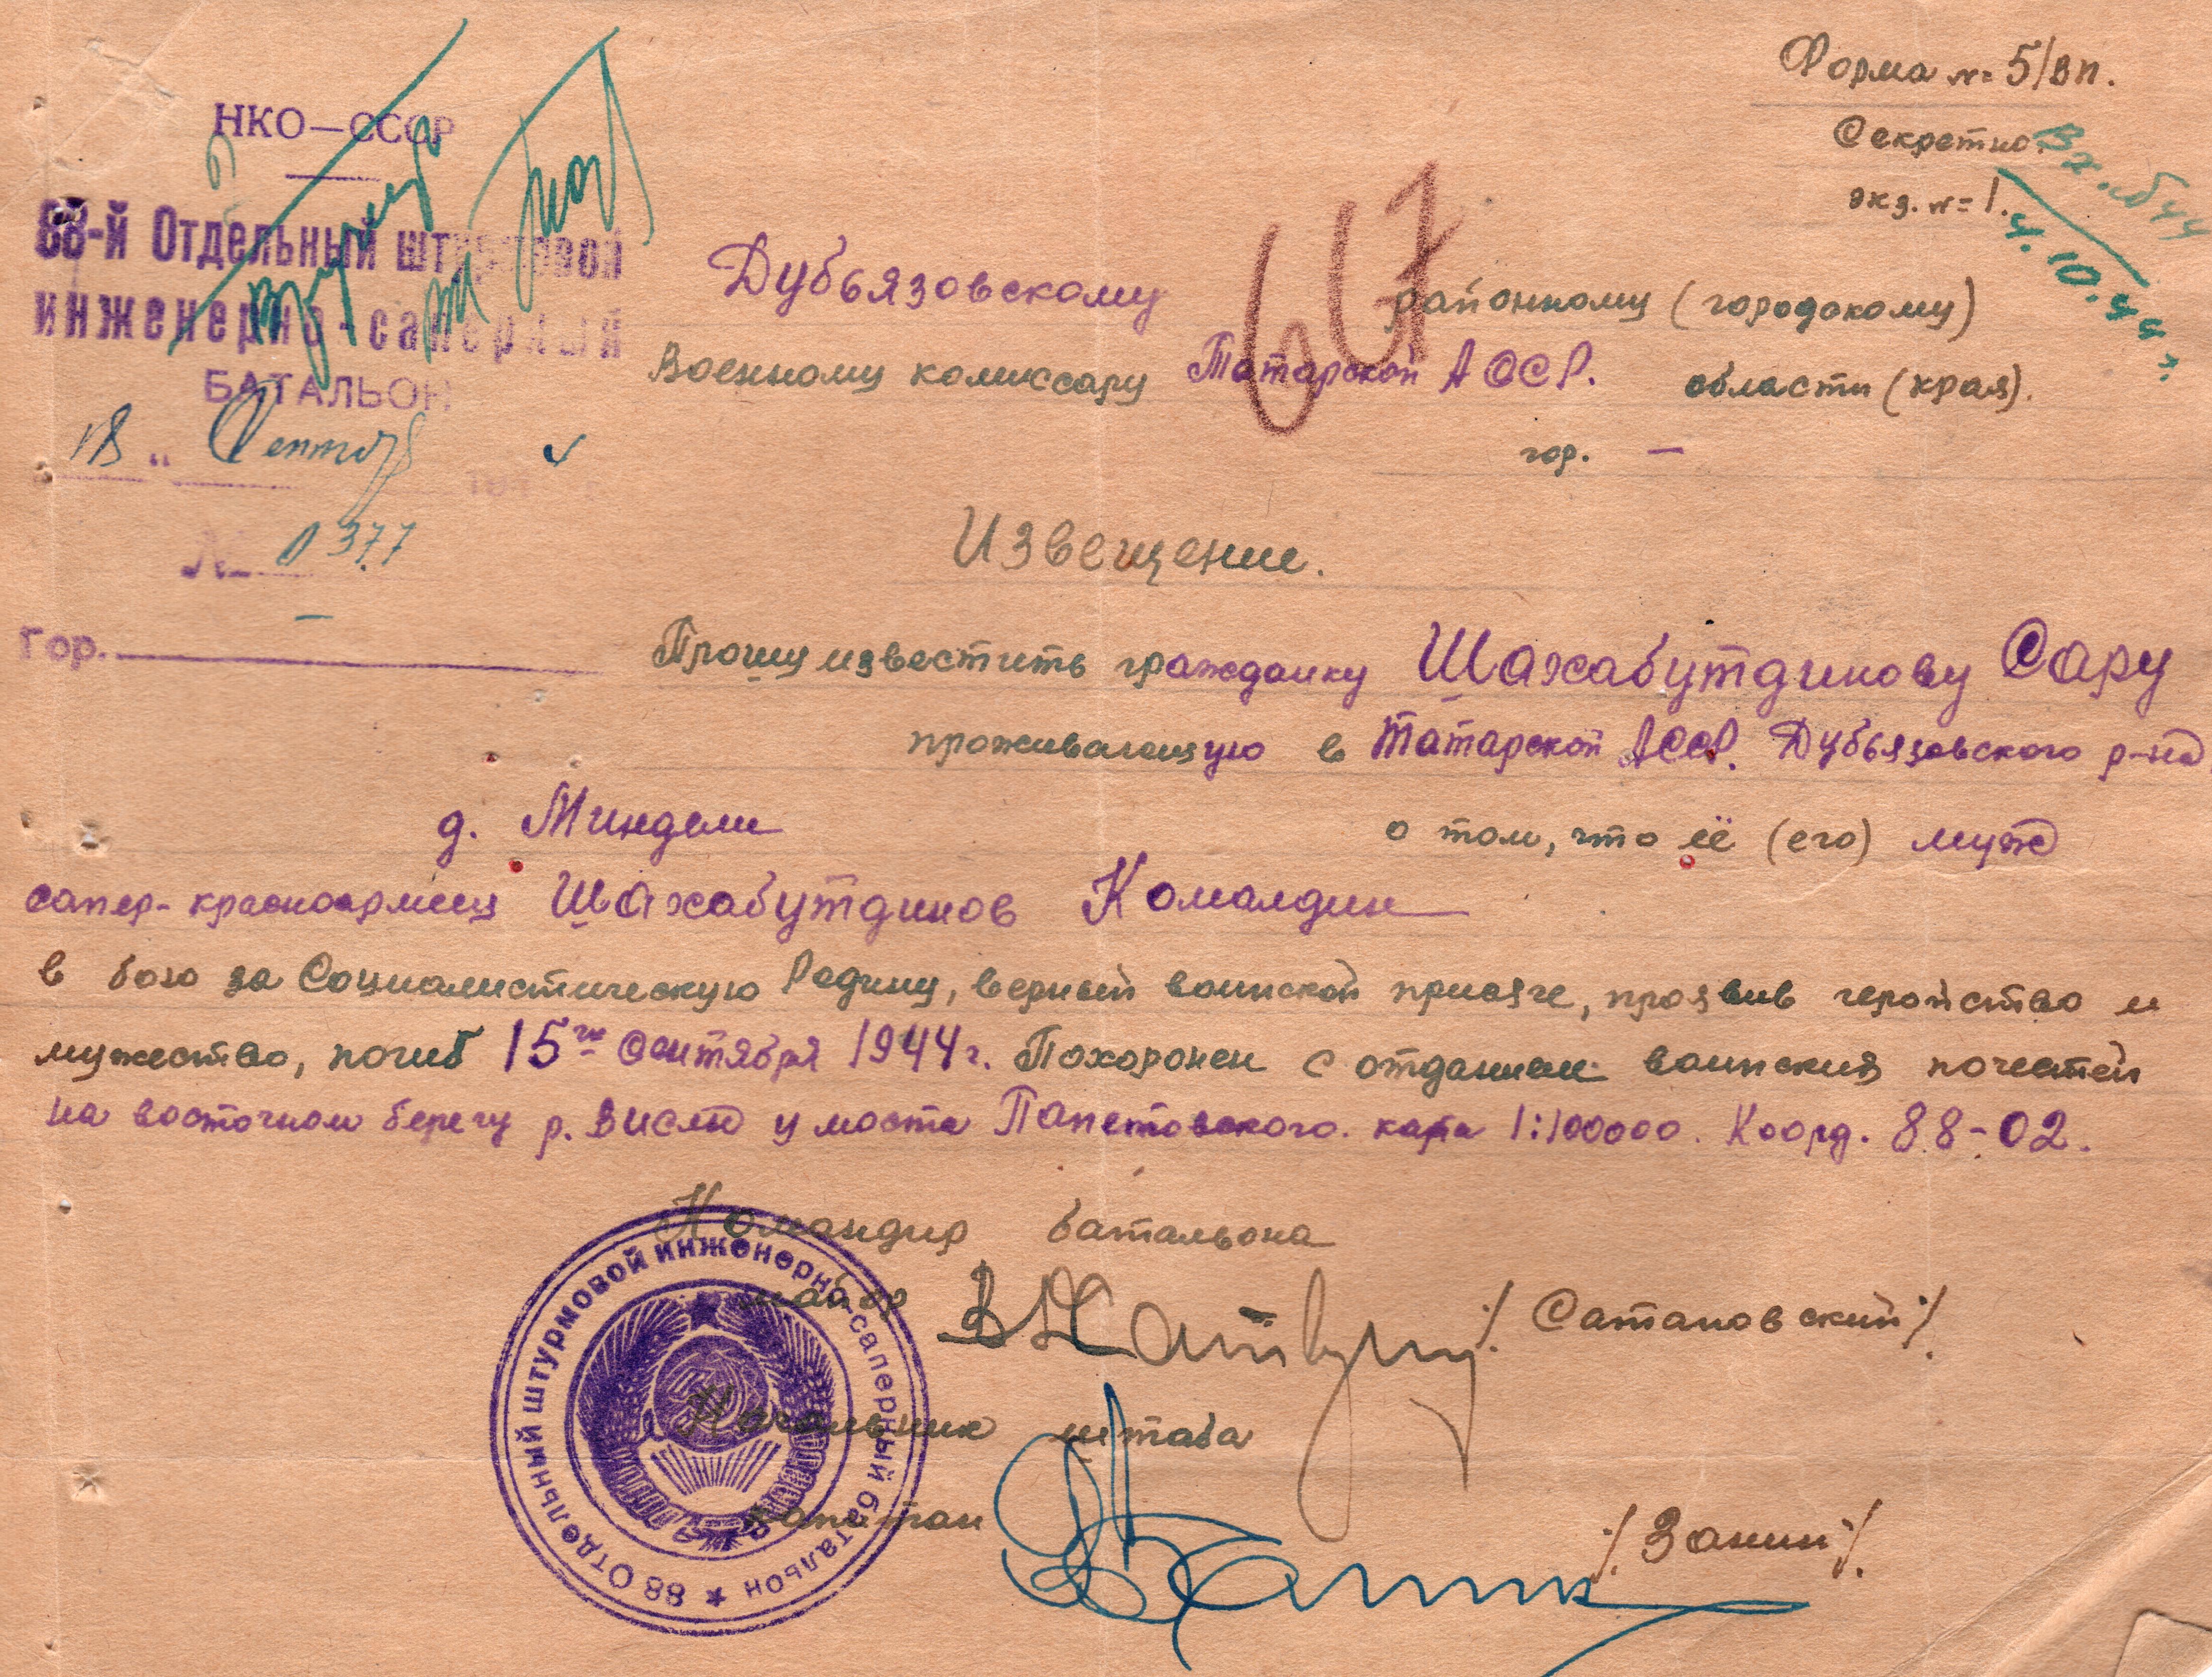 Форма № 5/вп.
Секретно.
экз. № 1.
Вх.
4.10.44 г.
НКО—СССР
88-й Отдельный штурмовой
инженерно-саперный
БАТАЛЬОН
18 " Сентябр
№ 0377
Гор. —
647
Дубьязовскому районному (городскому)
Военному комиссару Татарской АССР. области (края).
гор. —
Извещение.
Прошу известить гражданку Шахабутдинову Сару
проживающую в Татарской АССР. Дубьязовского р-на
д. Миндели о том, что её (его) муж
сапер-красноармеец Шахабутдинов Комалдин
в бою за Социалистическую Родину, верный воинской присяге, проявив геройство и
мужество, погиб 15го Сентября 1944 г. Похоронен с отданием воинских почестей
на восточном берегу р. Висла у моста Понятовского. карта 1:100000. Коорд. 88-02.
Командир батальона
майор /Сатановский/
Начальник штаба
капитан /Занин/
88 Отдельный штурмовой инженерно-саперный батальон